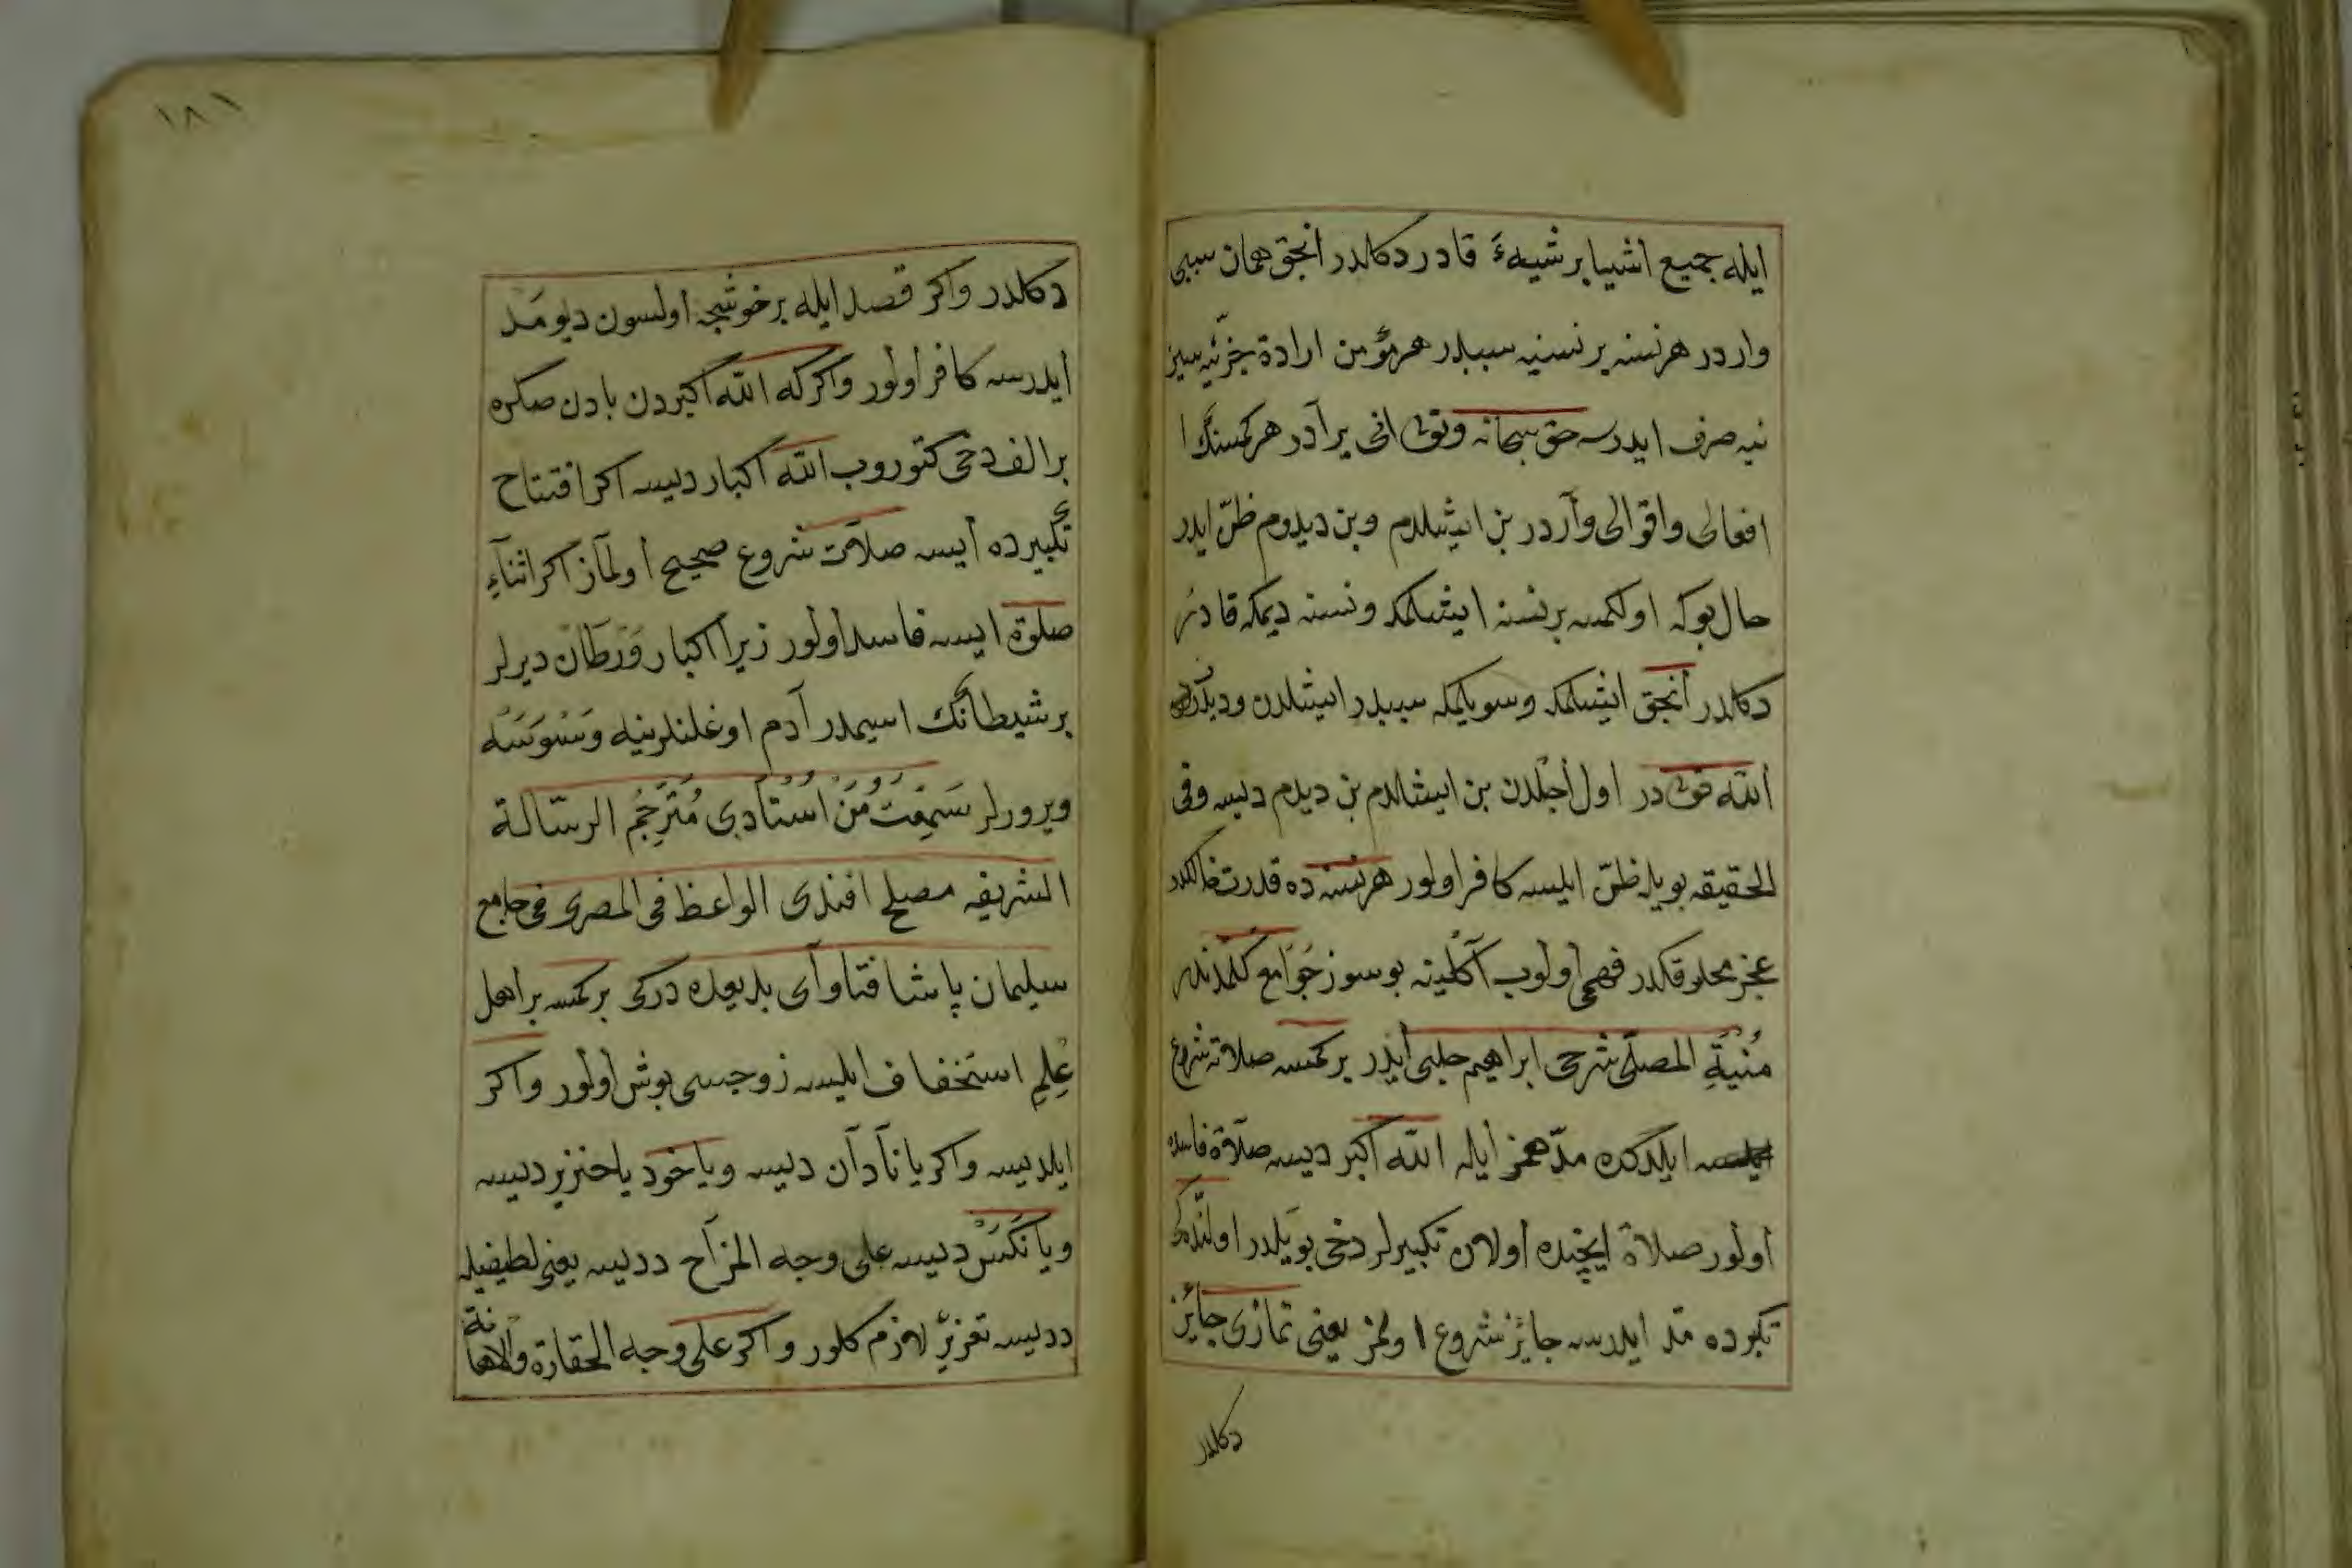 ايله جميع اشيا برشيهءَ قادر دكلدر انجق همان سببى
واردر هرنسنه برنسنيه سببدر هرمؤمن ارادۀ جزئيه سيز
نيه صرف ايدرسه حق سبحانه وتعالى انى يرآدر هركمسنڭ
افعالى واقوالى وآردر بن ايشلدم وبن ديدوم ظنّ ايدر
حال بوكه اولكمسه برنسنه ايشلمكه ونسنه ديمكه قادر
دكلدر أنجق ايشلمكه وسويلمكه سببدر ايشلدن وديدرن
أللّه تعالى در اول أجلدن بن ايشلدم بن ديدم ديسه وفى
الحقيقه بويله ظنّ ايلسه كافر اولور هرنسنه ده قدرت خالقكدر
عجز مخلوقكدر فهمى أولوب آكلينه بوسوز جَوامع كلمدندر
مُنْيَةِ المصلّى شرحى ابراهيم حلبى أيدر بركمسه صلاته شروع
ايلدكده مدّ همز أيله اللّه أكبر ديسه صلاة فاسده
أولور صلاة ايچنده أولان تكبيرلر دخى بويلدر اولنده كى
تكبرده مدّ ايدرسه جايز شروع اولمز يعنى نمازى جايز
دكلدر
١٨١
دكلدر واكر قصد ايله برخوشجه أولسون ديو مَد
أيدرسه كافر أولور واكركه اللّه أكبردن بادن صكره
بر الف دخى كتوروب اللّه اكبار ديسه اكر افتتاح
تكبيرده أيسه صلاته شروع صحيح أولمآز اكر اثنآءِ
صلوة ايسه فاسد اولور زيرا اكبار وَرَطَان ديرلر
برشيطانڭ اسيمدر آدم اوغلنلرينه وَسْوَسَه
ويرورلر سَمِعْتُ مِنْ اُسْتَادِى مُتَرْجِمُ الرسّالة
الشريفه مصلح افندى الواعظ فى المصرى فى جامع
سليمان پاشا فتاوآى بديعده دركى بركمسه براهل
عِلمِ استخفاف ايلسه زوجسى بوش أولور واكر
ايلديسه واكر يا نآدآن ديسه وياخود ياخنزير ديسه
ويا نَكَسْ ديسه على وجه المزآح دديسه يعنى لطيفيله
دديسه تعزيرّ لازم كلور واكر على وجه الحقارة والاهانة